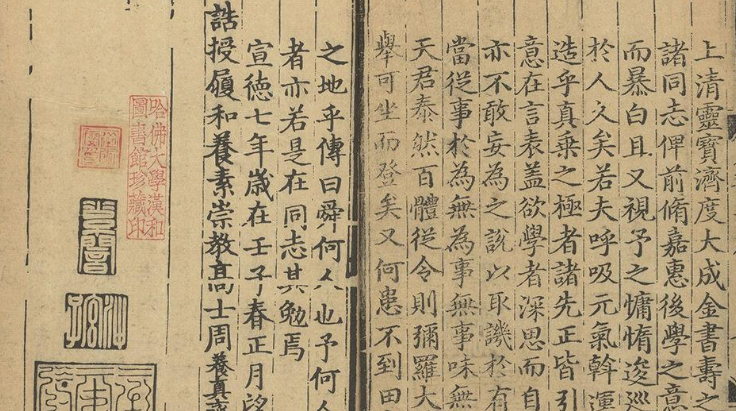 上清靈寶濟度大成金書壽之
諸同志俾前脩嘉惠後學之意
而暴白且又視予之慵惰逡巡
於人久矣若夫呼吸元氣斡運
造乎真乗之極者諸先正皆引
意在言表盖欲學者深思而自
亦不敢妄為之說以取譏於有
當從事於為無為事無事味無
天君泰然百體從令則彌羅大
舉可坐而登矣又何患不到田
之地乎傳曰舜何人也予何人
者亦若是在同志其勉焉
宣德七年歲在壬子春正月望
誥授履和養素崇教高士周養真
哈佛大學漢和
圖書館珍藏印